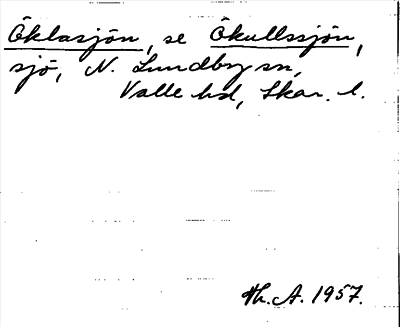 Öklasjön, se Ökullssjön,
sjö, N. Lundby sn,
Valle hd, Skar. l.
Th. A. 1957.